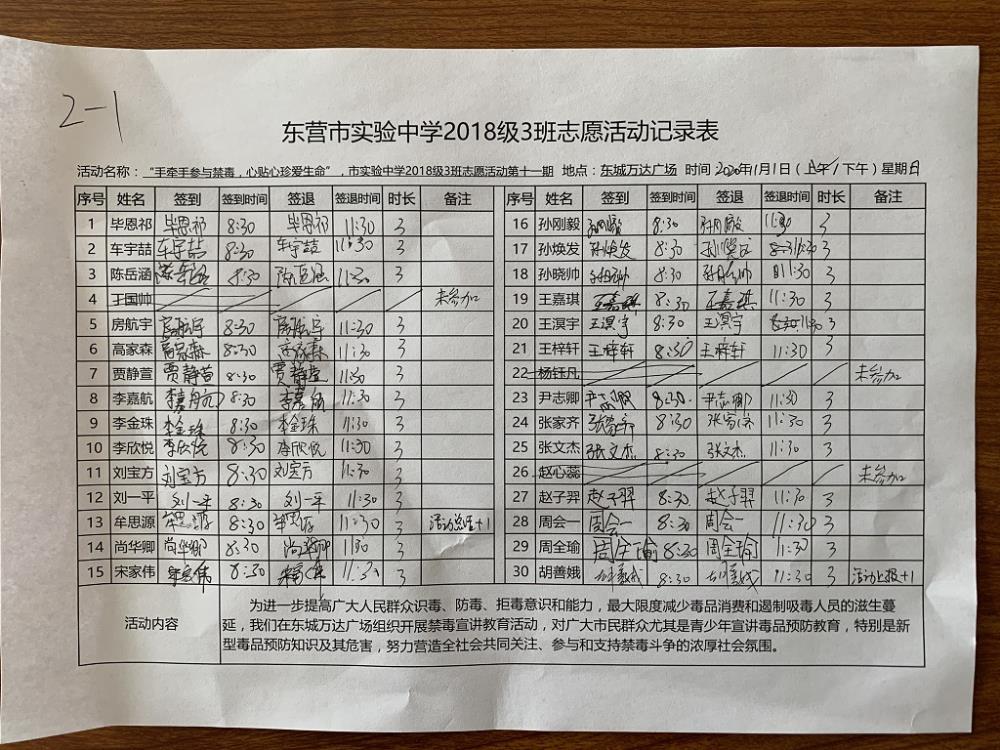 2-1
东营市实验中学2018级3班志愿活动记录表
活动名称：“手牵手参与禁毒，心贴心珍爱生命”，市实验中学2018级3班志愿活动第十一期 地点：东城万达广场 时间 2020年11月1日（上午/下午）星期日
序号 姓名 签到 签到时间 签退 签退时间 时长 备注 序号 姓名 签到 签到时间 签退 签退时间 时长 备注
1 毕恩祁 毕恩祁 8:30 毕恩祁 11:30 3 16 孙刚毅 孙刚毅 8:30 孙刚毅 11:30 3
2 车宇喆 车宇喆 8:30 车宇喆 11:30 3 17 孙焕发 孙焕发 8:30 孙焕发 11:30 3
3 陈岳涵 陈岳涵 8:30 陈岳涵 11:30 3 18 孙晓帅 孙晓帅 8:30 孙晓帅 11:30 3
4 于国帅 未参加 19 王嘉琪 王嘉琪 8:30 王嘉琪 11:30 3
5 房航宇 房航宇 8:30 房航宇 11:30 3 20 王溟宇 王溟宇 8:30 王溟宇 11:30 3
6 高家森 高家森 8:30 高家森 11:30 3 21 王梓轩 王梓轩 8:30 王梓轩 11:30 3
7 贾静萱 贾静萱 8:30 贾静萱 11:30 3 22 杨钰凡 未参加
8 李嘉航 李嘉航 8:30 李嘉航 11:30 3 23 尹志卿 尹志卿 8:30 尹志卿 11:30 3
9 李金珠 李金珠 8:30 李金珠 11:30 3 24 张家齐 张家齐 8:30 张家齐 11:30 3
10 李欣悦 李欣悦 8:30 李欣悦 11:30 3 25 张文杰 张文杰 8:30 张文杰 11:30 3
11 刘宝方 刘宝方 8:30 刘宝方 11:30 3 26 赵心蕊 未参加
12 刘一平 刘一平 8:30 刘一平 11:30 3 27 赵子羿 赵子羿 8:30 赵子羿 11:30 3
13 牟思源 牟思源 8:30 牟思源 11:30 3 活动总结+1 28 周会一 周会一 8:30 周会一 11:30 3
14 尚华卿 尚华卿 8:30 尚华卿 11:30 3 29 周全瑜 周全瑜 8:30 周全瑜 11:30 3
15 宋家伟 宋家伟 8:30 宋家伟 11:30 3 30 胡善娥 胡善娥 8:30 胡善娥 11:30 3 活动上报+1
为进一步提高广大人民群众识毒、防毒、拒毒意识和能力，最大限度减少毒品消费和遏制吸毒人员的滋生蔓
活动内容 延，我们在东城万达广场组织开展禁毒宣讲教育活动，对广大市民群众尤其是青少年宣讲毒品预防教育，特别是新
型毒品预防知识及其危害，努力营造全社会共同关注、参与和支持禁毒斗争的浓厚社会氛围。